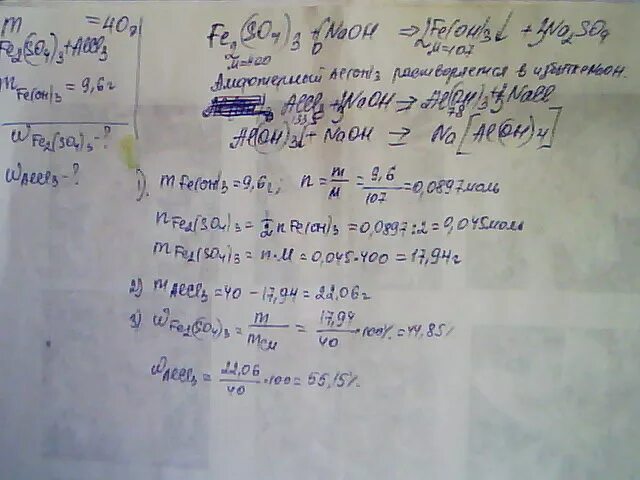 m = 40г
Fe₂(SO₄)₃ + AlCl₃
m Fe(OH)₃ = 9,6г
W Fe₂(SO₄)₃ - ?
W AlCl₃ - ?
Fe₂(SO₄)₃ + 6NaOH ⇒ 2Fe(OH)₃↓ + 3Na₂SO₄
M=400 M=107
Амфотерный Al(OH)₃ растворяется в избытке NaOH.
AlCl₃ + 3NaOH ⇒ Al(OH)₃ + 3NaCl
133,5 78
Al(OH)₃↓ + NaOH ⇒ Na[Al(OH)4]
1). m Fe(OH)₃ = 9,6г; n = m/M = 9,6/107 = 0,0897моль
n Fe₂(SO₄)₃ = 1/2 n Fe(OH)₃ = 0,0897 : 2 = 0,045моль
m Fe₂(SO₄)₃ = n·M = 0,045·400 = 17,94г
2) m AlCl₃ = 40 - 17,94 = 22,06г
3) W Fe₂(SO₄)₃ = m/mсм = 17,94/40 · 100% = 44,85%
W AlCl₃ = 22,06/40 · 100 = 55,15%.